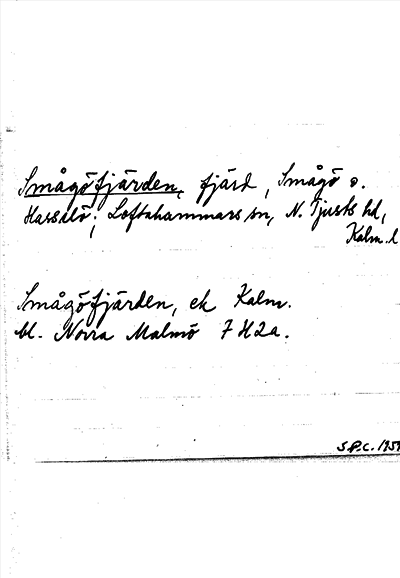 Smågöfjärden, fjärd, Smågö o.
Hasselö; Loftahammars sn, N. Tjusts hd,
Kalm. l
Smågöfjärden, ek Kalm.
bl. Norra Malmö 7 H2a.
S.P.C. 1959